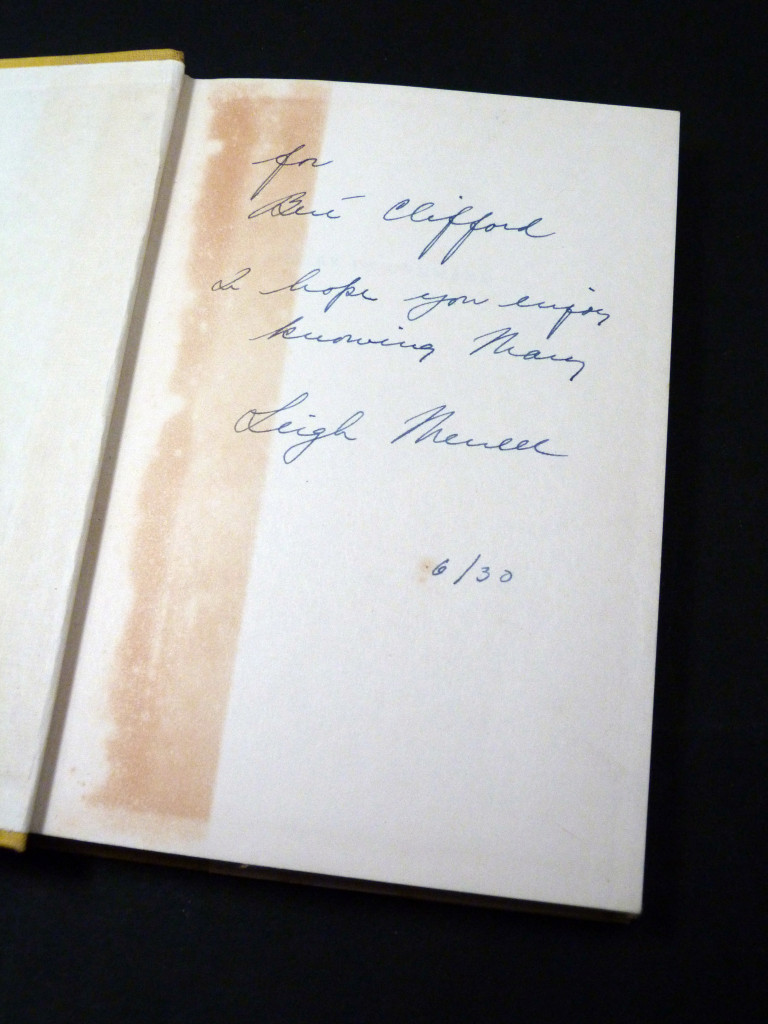 for
Bert Clifford
I hope you enjoy
knowing Mary
Leigh Merrell
6/30